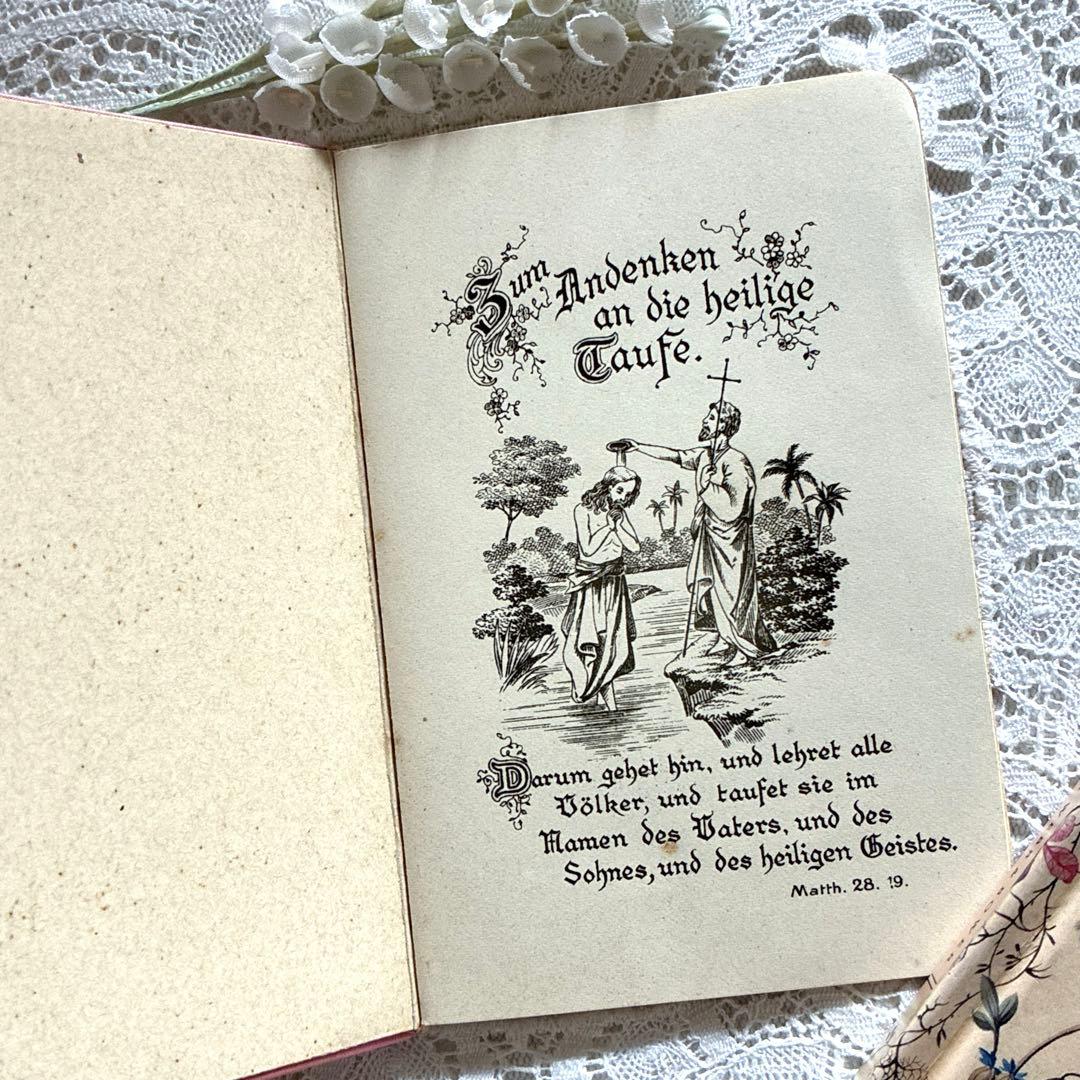 Zum Andenken
an die heilige
Taufe.
Darum gehet hin, und lehret alle
Völker, und taufet sie im
Namen des Vaters, und des
Sohnes, und des heiligen Geistes.
Matth. 28. 19.